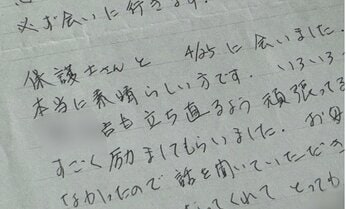 お会いに行きます。
保護士さんと 4/25に会いました。
本当に素晴らしい方です。いろいろ
も立ち直るよう 頑張ってる
すごく励ましてもらいました。お母
なかったので話を聞いていただき
てくれて とっても